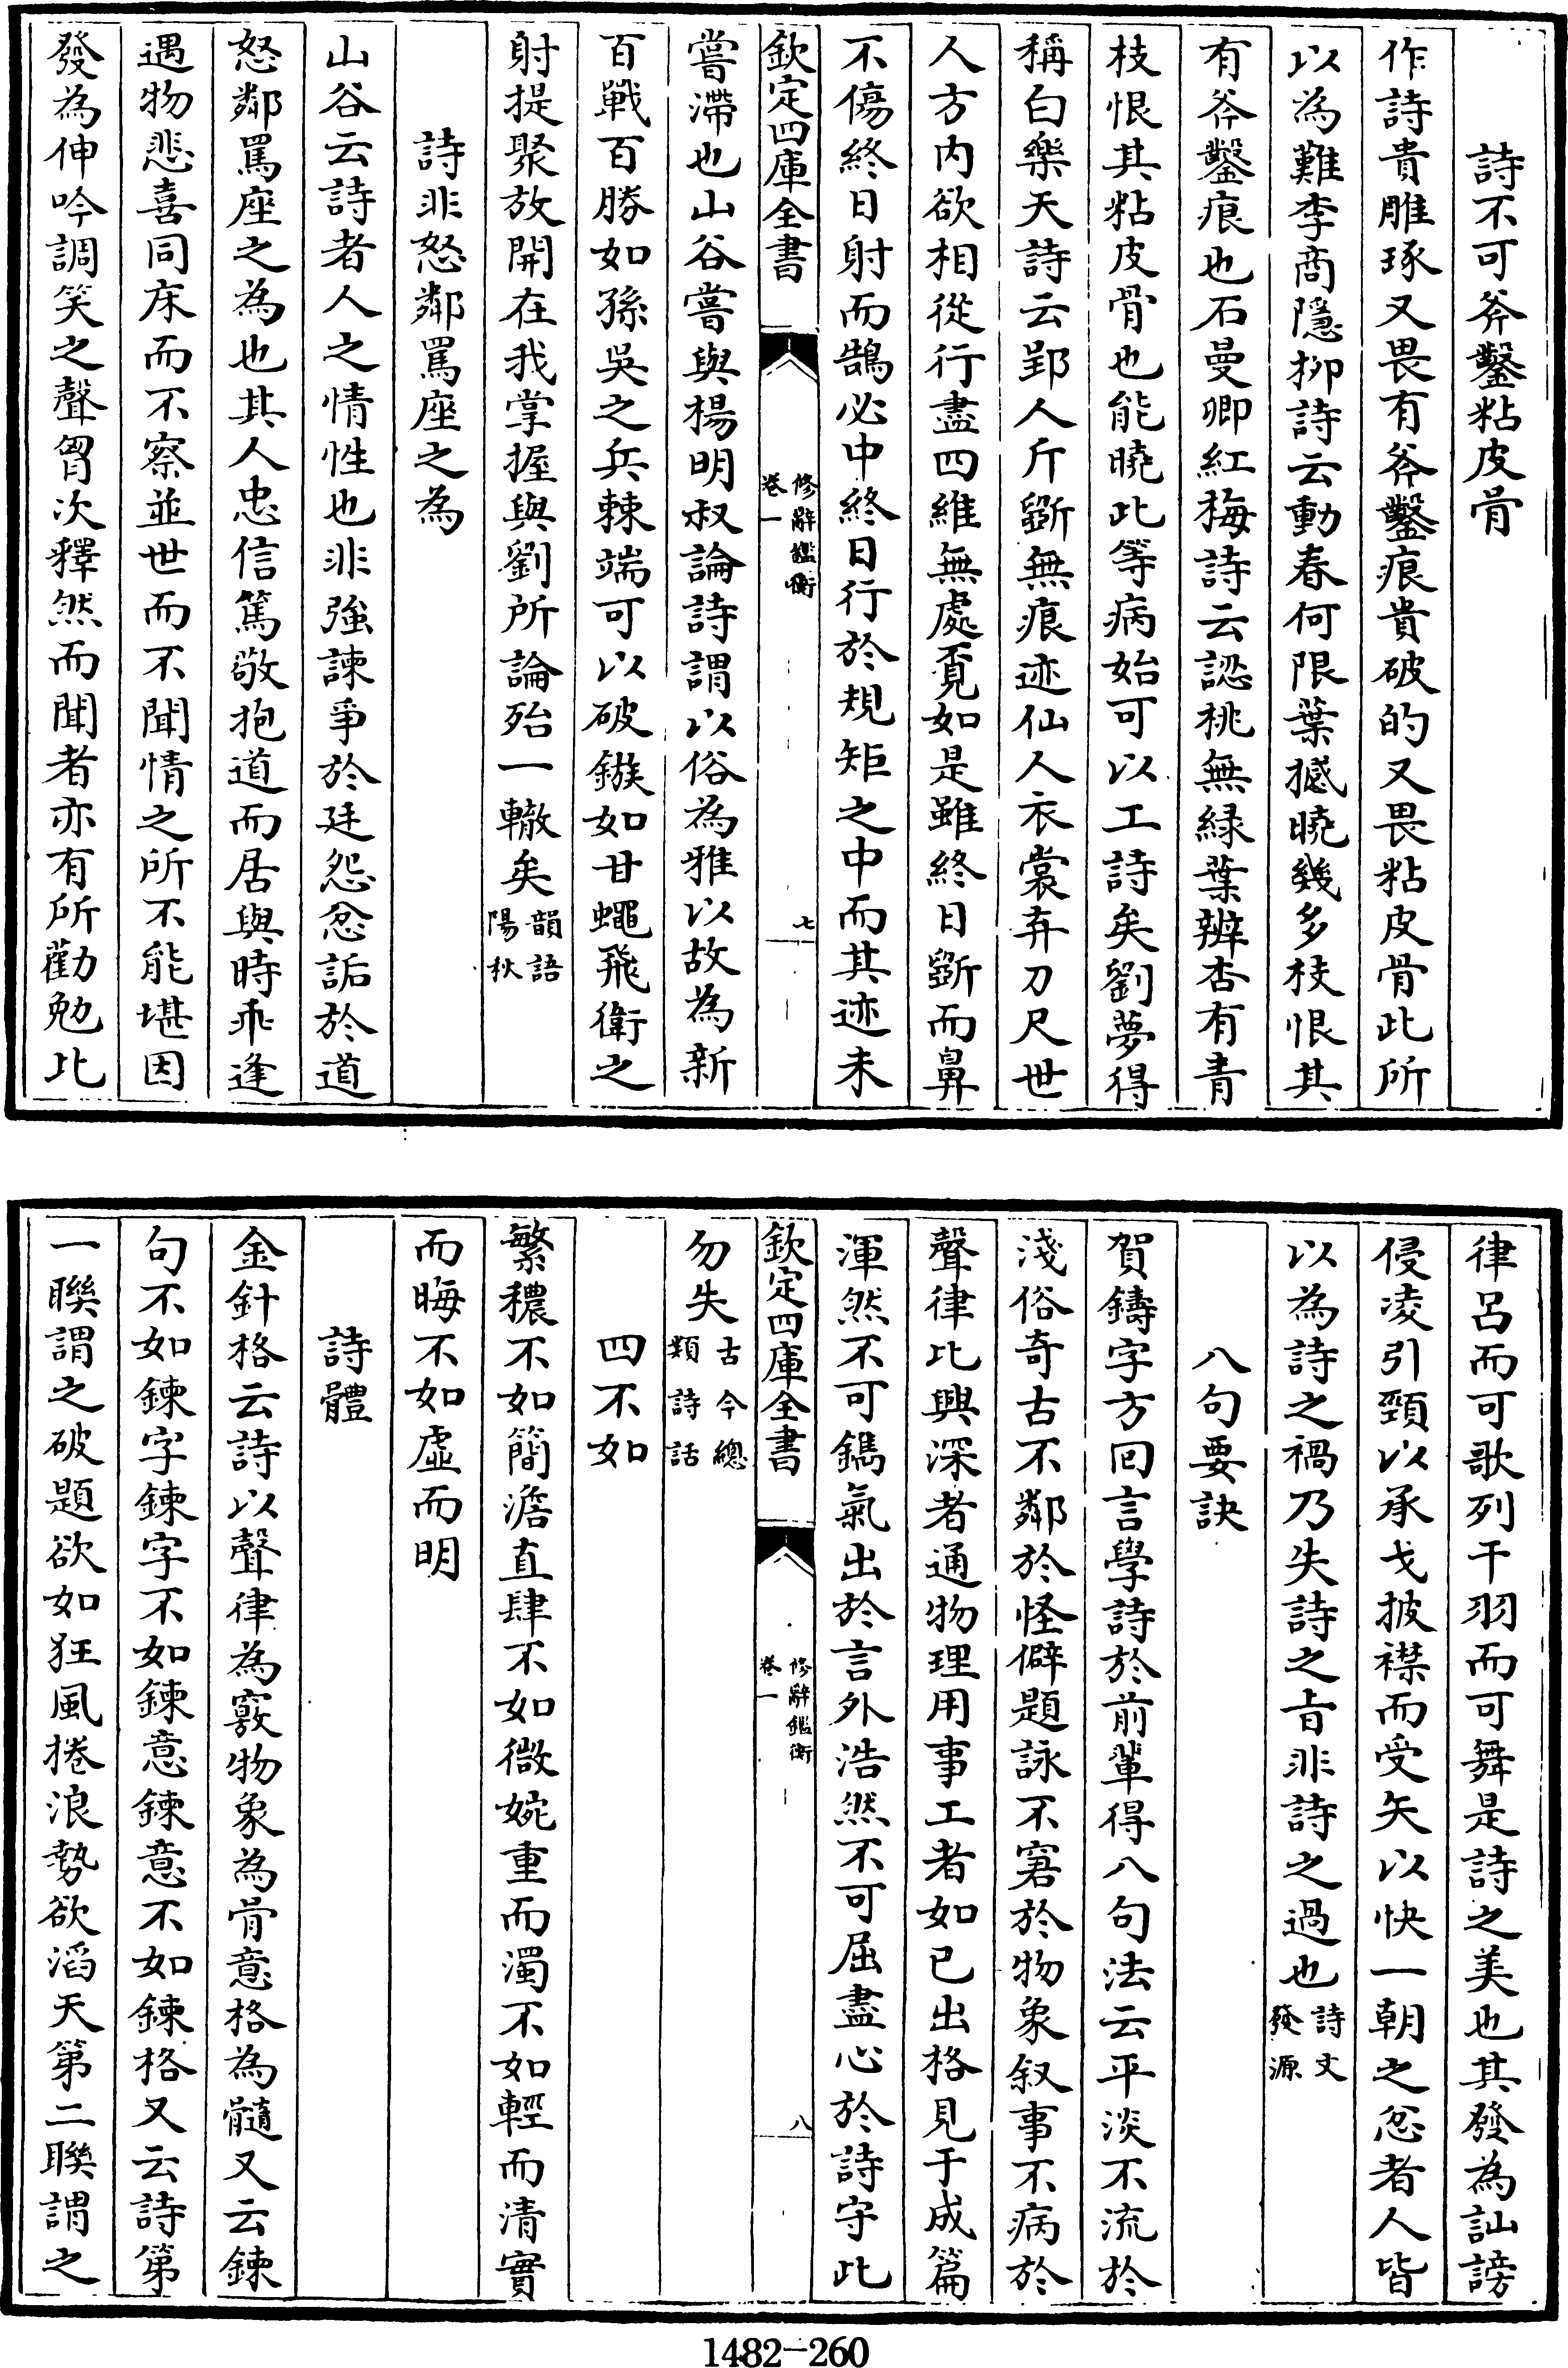 詩不可斧鑿粘皮骨
作詩貴雕琢又畏有斧鑿痕貴破的又畏粘皮骨此所
以為難李商隱栁詩云動春何限葉撼曉幾多枝恨其
有斧鑿痕也石曼卿紅梅詩云認桃無緑葉辨杏有青
枝恨其粘皮骨也能曉此等病始可以工詩矣劉夢得
稱白樂天詩云郢人斤斲無痕迹仙人衣裳弃刀尺世
人方内欲相從行盡四維無處覔如是雖終日斲而鼻
不傷終日射而鵠必中終日行於規矩之中而其迹未
欽定四庫全書
修辭鑑衡
卷一
七
嘗滯也山谷嘗與楊明叔論詩謂以俗為雅以故為新
百戰百勝如孫吳之兵棘端可以破鏃如甘蠅飛衛之
射捉聚放開在我掌握與劉所論殆一轍矣韻語
陽秋
詩非怒鄰罵座之為
山谷云詩者人之情性也非強諫爭於廷怨忿詬於道
怒鄰罵座之為也其人忠信篤敬抱道而居與時乖逢
遇物悲喜同床而不察並世而不聞情之所不能堪因
發為伸吟調笑之聲胷次釋然而聞者亦有所勸勉比
律呂而可歌列干羽而可舞是詩之美也其發為訕謗
侵凌引頸以承戈披襟而受矢以快一朝之忿者人皆
以為詩之禍乃失詩之㫖非詩之過也詩文
發源
八句要訣
賀鑄字方回言學詩於前輩得八句法云平淡不流於
淺俗奇古不鄰於怪僻題詠不窘於物象叙事不病於
聲律比興深者通物理用事工者如已出格見于成篇
渾然不可鐫氣出於言外浩然不可屈盡心於詩守此
欽定四庫全書
修辭鑑衡
卷一
八
勿失古今總
類詩話
四不如
繁穠不如簡澹直肆不如微婉重而濁不如輕而清實
而晦不如虛而明
詩體
金針格云詩以聲律為竅物象為骨意格為髓又云鍊
句不如鍊字鍊字不如鍊意鍊意不如鍊格又云詩第
一聯謂之破題欲如狂風捲浪勢欲滔天第二聯謂之
1482-260